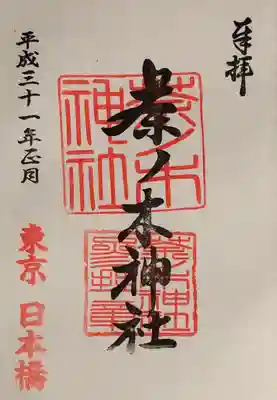 奉拝
茶ノ木神社
茶ノ木
神社
平成三十一年正月
東京 日本橋